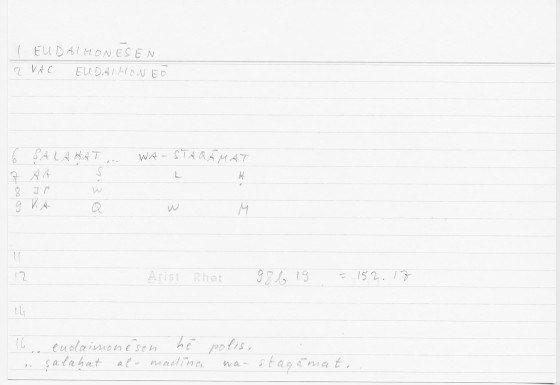 1 EUDAIMONĒSEN
2 VAC EUDAIMONEŌ
6 ṢALAḤAT... WA-STAQĀMAT
7 AA Ṣ L Ḥ
8 IP W
9 VA Q W M
11
12 Arist Rhet 98b 19 = 152, 17
14
16 .. eudaimonēsen hē polis.
.. ṣalaḥat al-madīna wa-staqāmat.